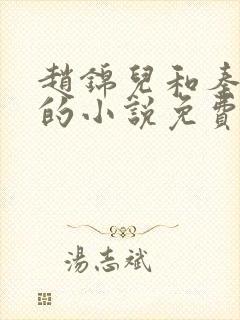 趙錦兒和秦
的小說免費
湯志斌